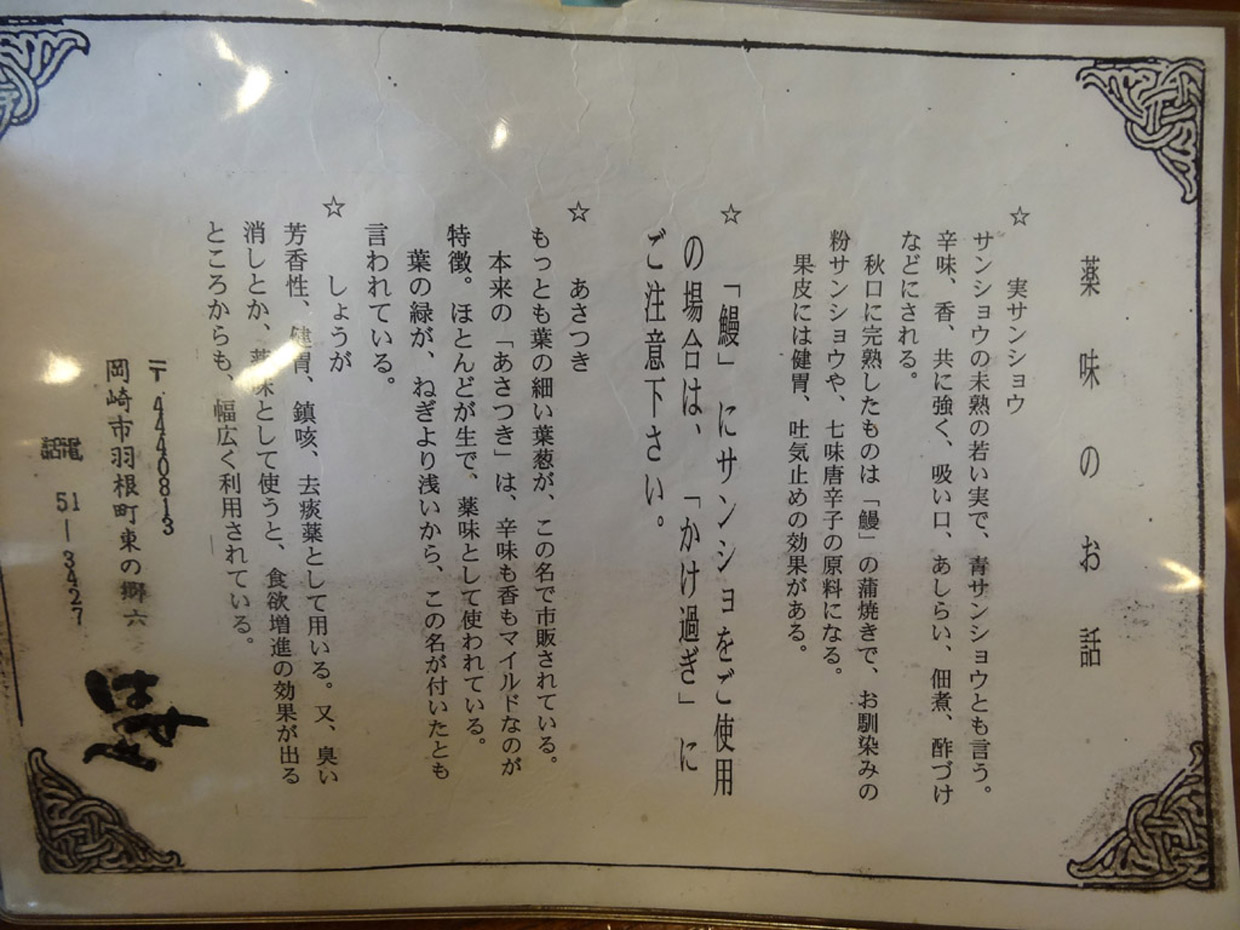 薬味のお話
☆ 実サンショウ
サンショウの未熟の若い実で、青サンショウとも言う。
辛味、香、共に強く、吸い口、あしらい、佃煮、酢づけ
などにされる。
秋口に完熟したものは「鰻」の蒲焼きで、お馴染みの
粉サンショウや、七味唐辛子の原料になる。
果皮には健胃、吐気止めの効果がある。
☆ 「鰻」にサンショをご使用
の場合は、「かけ過ぎ」に
ご注意下さい。
☆ あさつき
もっとも葉の細い葉葱が、この名で市販されている。
本来の「あさつき」は、辛味も香もマイルドなのが
特徴。ほとんどが生で、薬味として使われている。
葉の緑が、ねぎより浅いから、この名が付いたとも
言われている。
☆ しょうが
芳香性、健胃、鎮咳、去痰薬として用いる。又、臭い
消しとか、薬味として使うと、食欲増進の効果が出る
ところからも、幅広く利用されている。
〒4440813
岡崎市羽根町東の郷六
電話 51-3427
はせべ